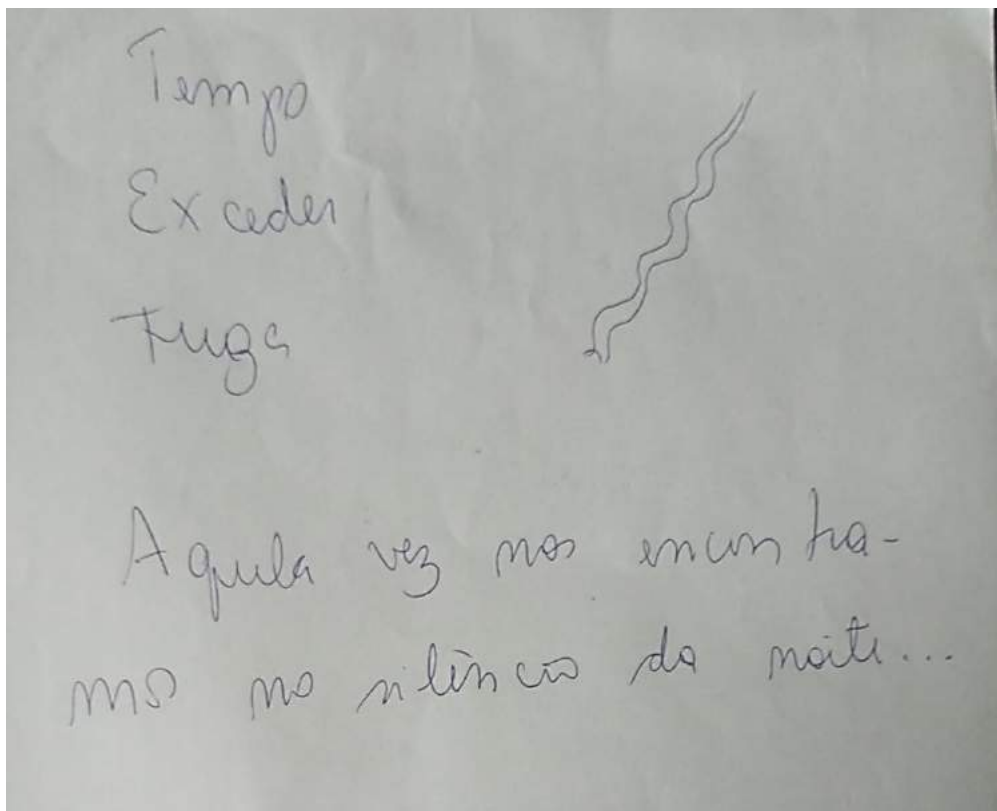 Tempo
Exceder
Fuga
Aquela vez nos encontra-
mos no silêncio da noite...